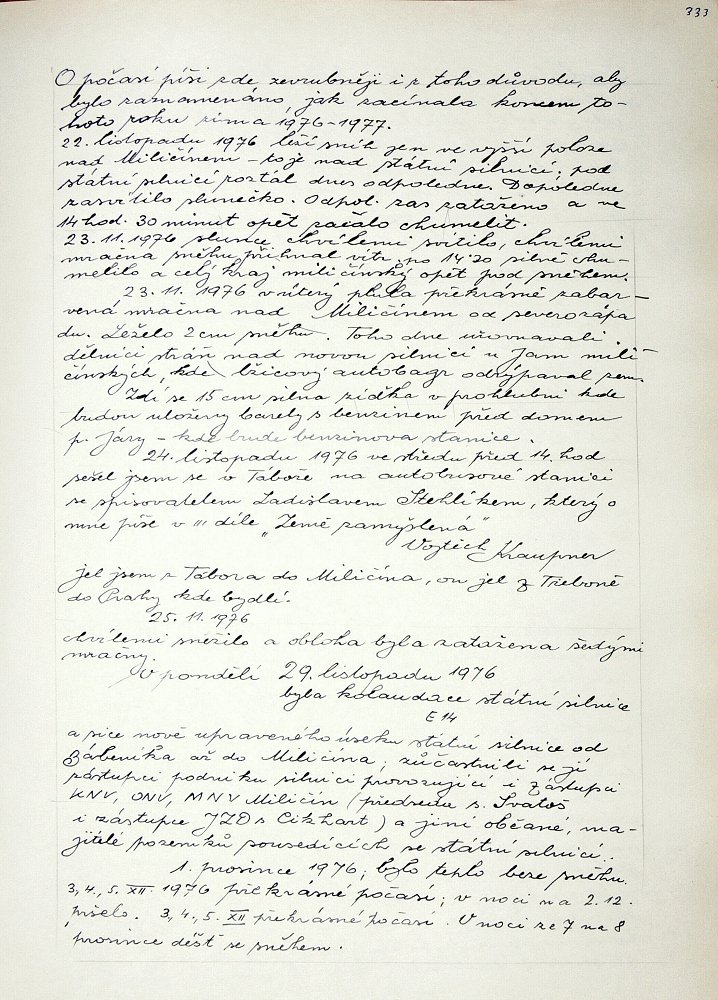 333
O počasí píši zde zevrubněji i z toho důvodu, aby
bylo zaznamenáno, jak začínala koncem to-
hoto roku zima 1976-1977.
22. listopadu 1976 leží sníh jen ve vyšší poloze
nad Miličínem - to je nad státní silnicí; pod
státní silnicí roztál dnes odpoledne. Dopoledne
zasvitlo slunečko. Odpol. zas zataženo a ve
14 hod. 30 minut opět začalo chumelit.
23. 11. 1976 slunce chvílemi svitilo, chvílemi
mračna sněhu přihnal vítr, po 14.20 silně chu-
melilo a celý kraj miličínský opět pod sněhem.
23. 11. 1976 v úterý plula překrásně zabar-
vená mračna nad Miličínem od severozápa
du. Leželo 2 cm sněhu. Toho dne urovnavali
dělníci stráň nad novou silnicí u Jam mili-
čínských, kde lžicový autobagr odrýpaval zem.
Zdí se 15 cm silna zídka v prohlubni kde
budou uloženy barely s benzinem před domem
p. Járy - kde bude benzinova stanice.
24. listopadu 1976 ve středu před 14. hod
sešel jsem se v Táboře na autobusové stanici
se spisovatelem Ladislavem Stehlíkem, který o
mne píše v III díle „Země zamyšlená"
Vojtěch Kraupner
jel jsem z Tábora do Miličína, on jel z Třeboně
do Prahy kde bydlí.
25. 11. 1976
chvílemi sněžilo a obloha byla zatažena šedými
mračny.
V pondělí 29. listopadu 1976
byla kolaudace státní silnice
E 14
a sice nově upraveného úseku státní silnice od
Zábenika až do Miličína; zúčastnili se jí
zástupci podniku silnici provozující i zástupci
KNV, ONV, MNV Miličín (předseda s. Svatoš
i zástupce JZD s Cikhart) a jiní občané, ma-
jitelé pozemků sousedících se státní silnicí.
1. prosince 1976; bylo teplo beze sněhu.
3, 4., 5. XII. 1976 překrásné počasí; v noci na 2. 12.
pršelo. 3, 4., 5. XII překrásné počasí. V noci ze 7 na 8
prosince déšť se sněhem.